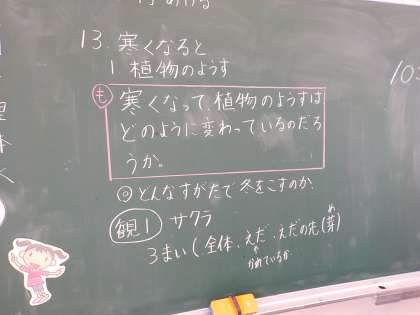 13. 寒くなると
1 植物のようす
も 寒くなって、植物のようすは
どのように変わっているのだろ
うか。
◎どんなすがたで冬をこすのか
観1 サクラ
3まい(全体、えだ、えだの先(芽)
め
かれているか
10: